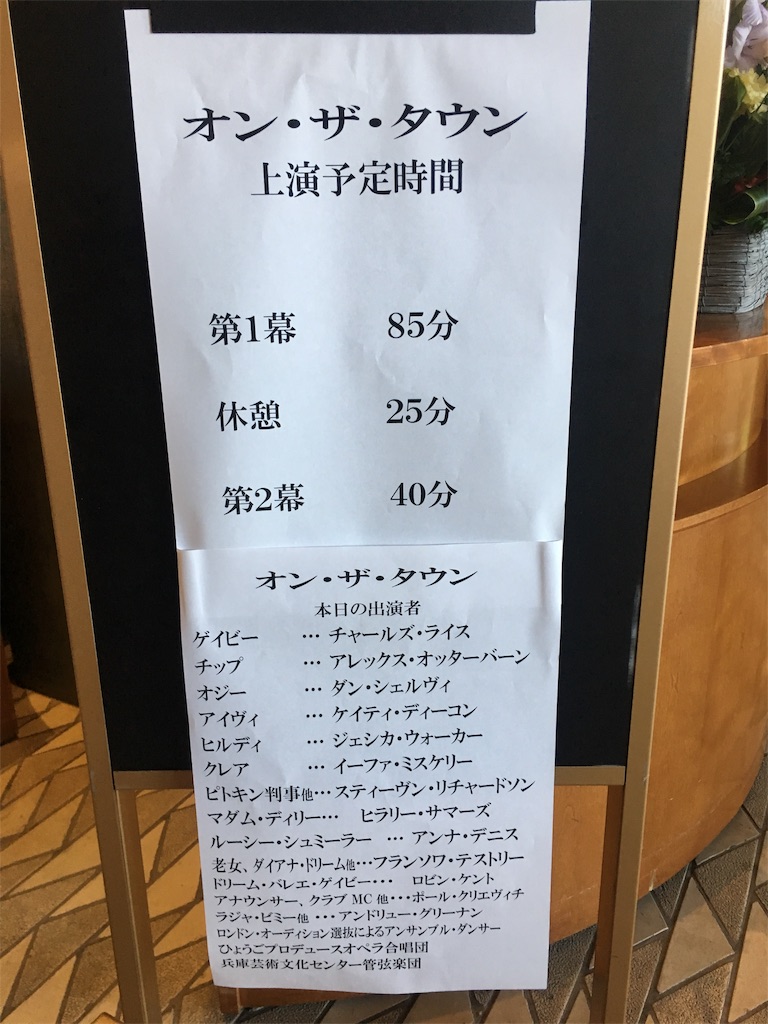 オン・ザ・タウン
上演予定時間
第1幕 85分
休憩 25分
第2幕 40分
オン・ザ・タウン
本日の出演者
ゲイビー … チャールズ・ライス
チップ … アレックス・オッターバーン
オジー … ダン・シェルヴィ
アイヴィ … ケイティ・ディーコン
ヒルディ … ジェシカ・ウォーカー
クレア … イーファ・ミスケリー
ピトキン判事他… スティーヴン・リチャードソン
マダム・ディリー… ヒラリー・サマーズ
ルーシー・シュミーラー … アンナ・デニス
老女、ダイアナ・ドリーム他…フランソワ・テストリー
ドリーム・バレエ・ゲイビー… ロビン・ケント
アナウンサー、クラブ MC 他…ポール・クリエヴィチ
ラジャ・ビミー他 …アンドリュー・グリーナン
ロンドン・オーディション選抜によるアンサンブル・ダンサー
ひょうごプロデュースオペラ合唱団
兵庫芸術文化センター管弦楽団